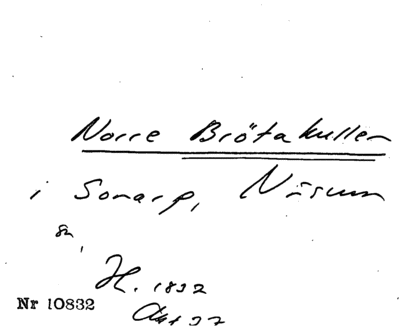 Norre Brötakullen
i Sonarp, Näsum
sn,
H. 1832
Akt 37
Nr 10832